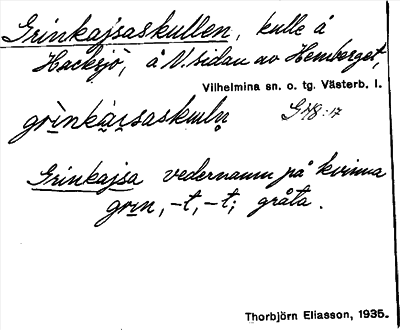 Grinkajsaskullen, kulle å
Hacksjö, å V. sidan av Hemberget,
Vilhelmina sn. o. tg. Västerb. l.
grìnkàisaskulṇ G48:17
Grinkajsa vedernamn på kvinna
grın, -t, -t; gråta.
Thorbjörn Eliasson, 1935.